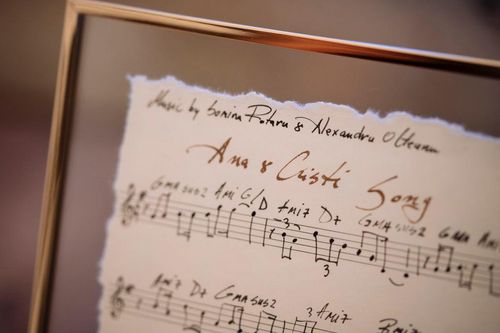 Music by Sorina Rotaru & Alexandru Olteanu
Ana & Cristi Song
Gmasus2 Ami G/D Ami7 D7 Gmasus2 Gma Ami
3
3
Ami7 D7 Gmasus2 3 Ami7